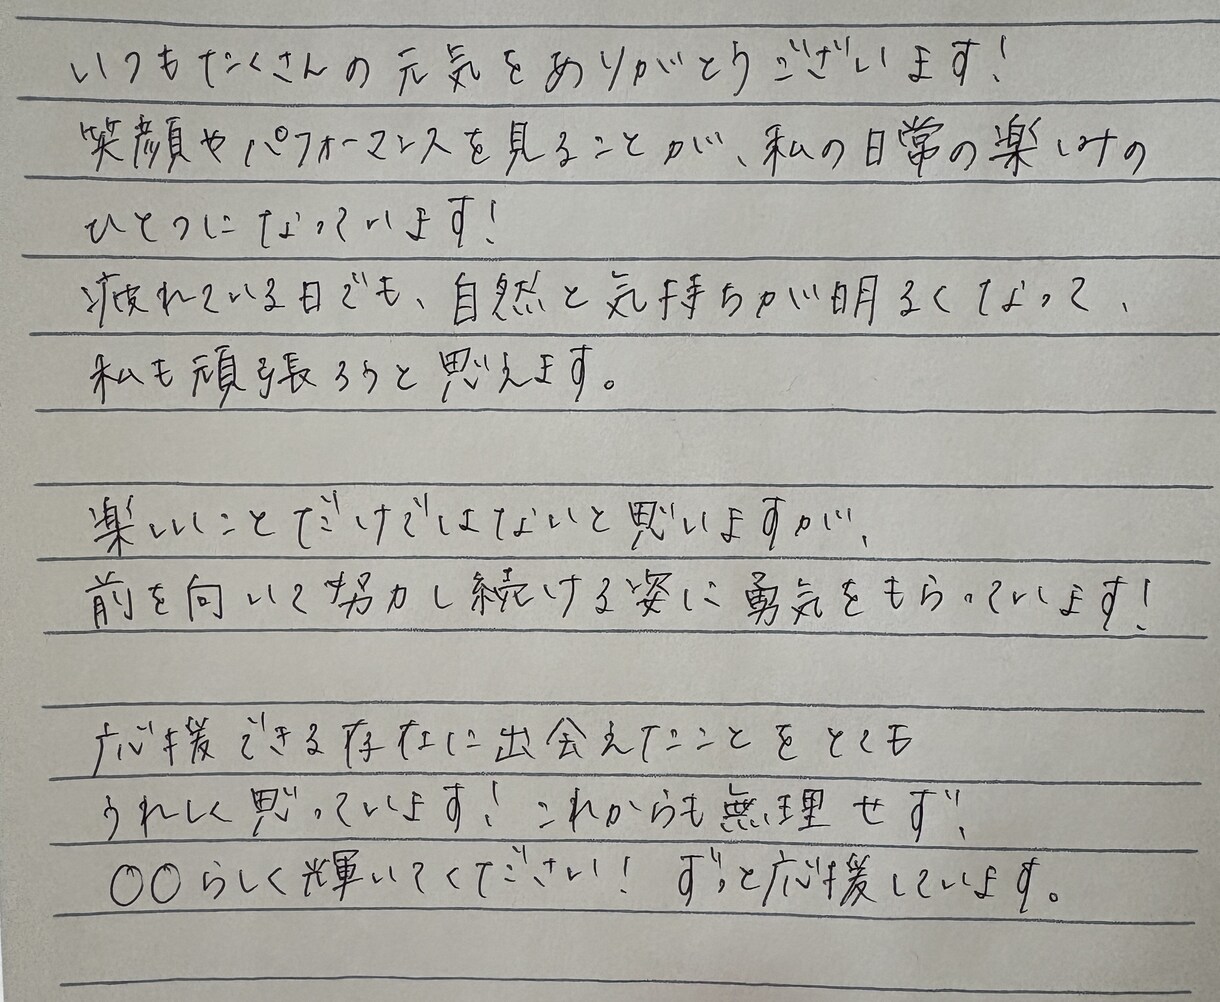 いつもたくさんの元気をありがとうございます!
笑顔やパフォーマンスを見ることが、私の日常の楽しみの
ひとつになっています!
疲れている日でも、自然と気持ちが明るくなって、
私も頑張ろうと思えます。
楽しいことだけではないと思いますが、
前を向いて努力し続ける姿に勇気をもらっています!
応援できる存在に出会えたことをとても
うれしく思っています!これからも無理せず、
〇〇らしく輝いてください! ずっと応援しています。